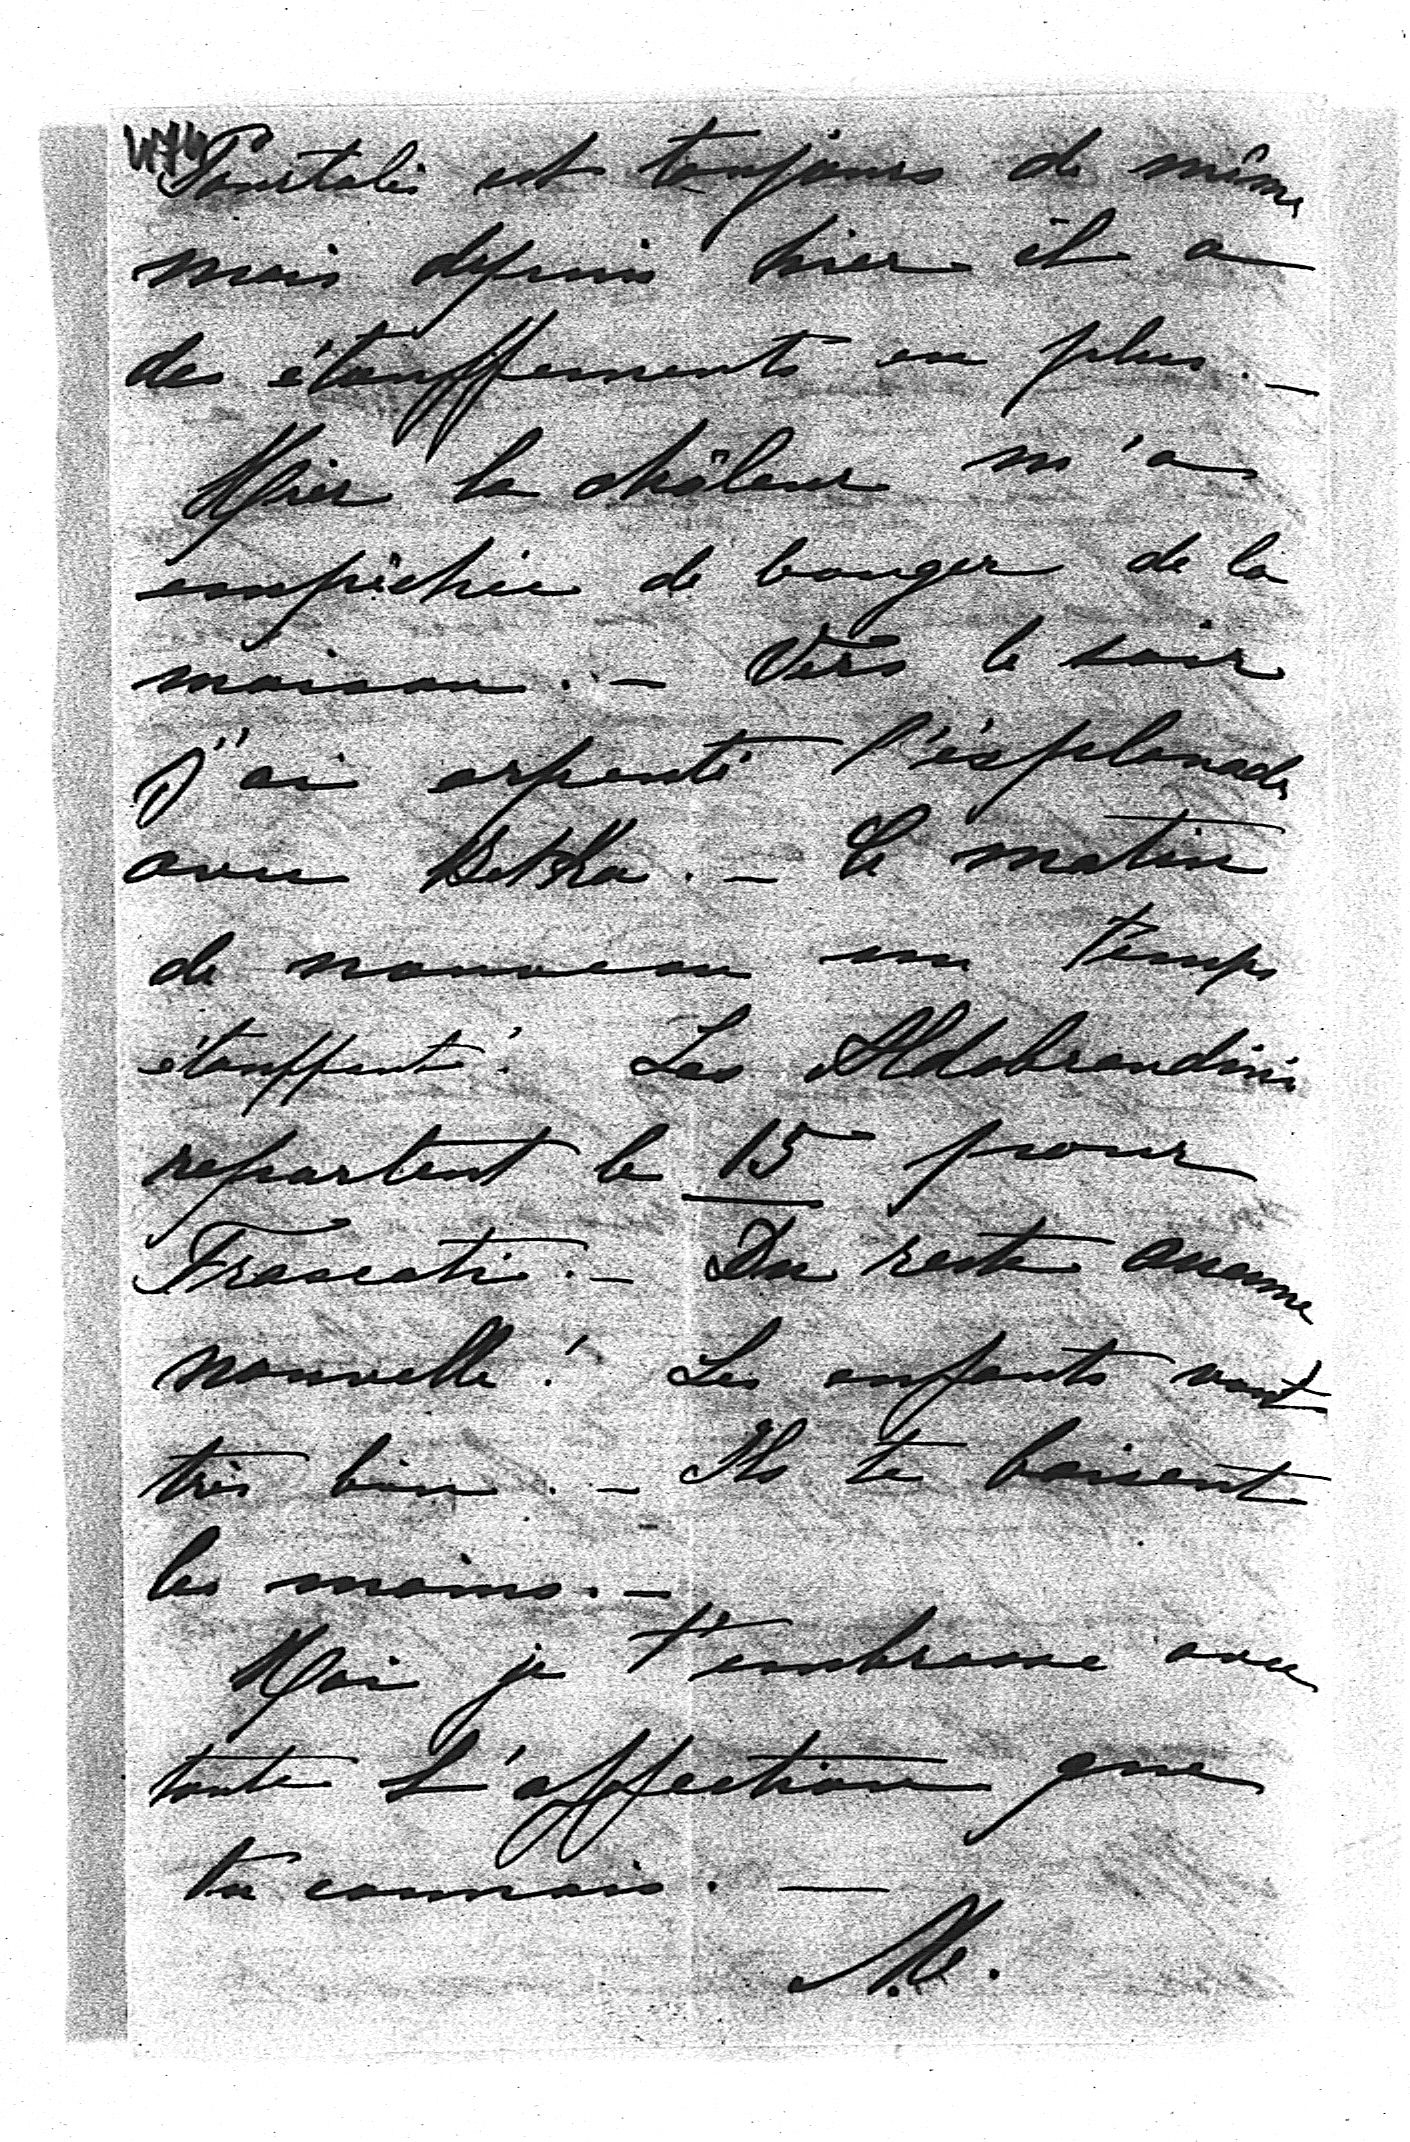 Pourtalès est toujours de même
mais depuis hier il a
des étouffements en plus. —
Hier la châleur m'a
empêchée de bouger de la
maison. — Vers le soir
j'ai arpenté l'ésplanade
avec Betska. — Ce matin
de nouveau un temps
étouffant! Les Aldobrandini
repartent le 15 pour
Frascati. — Du reste aucune
nouvelle! Les enfants vont
très bien. — Ils te baisent
les mains. —
Moi je t'embrasse avec
toute l'affection que
tu connais. —
M.